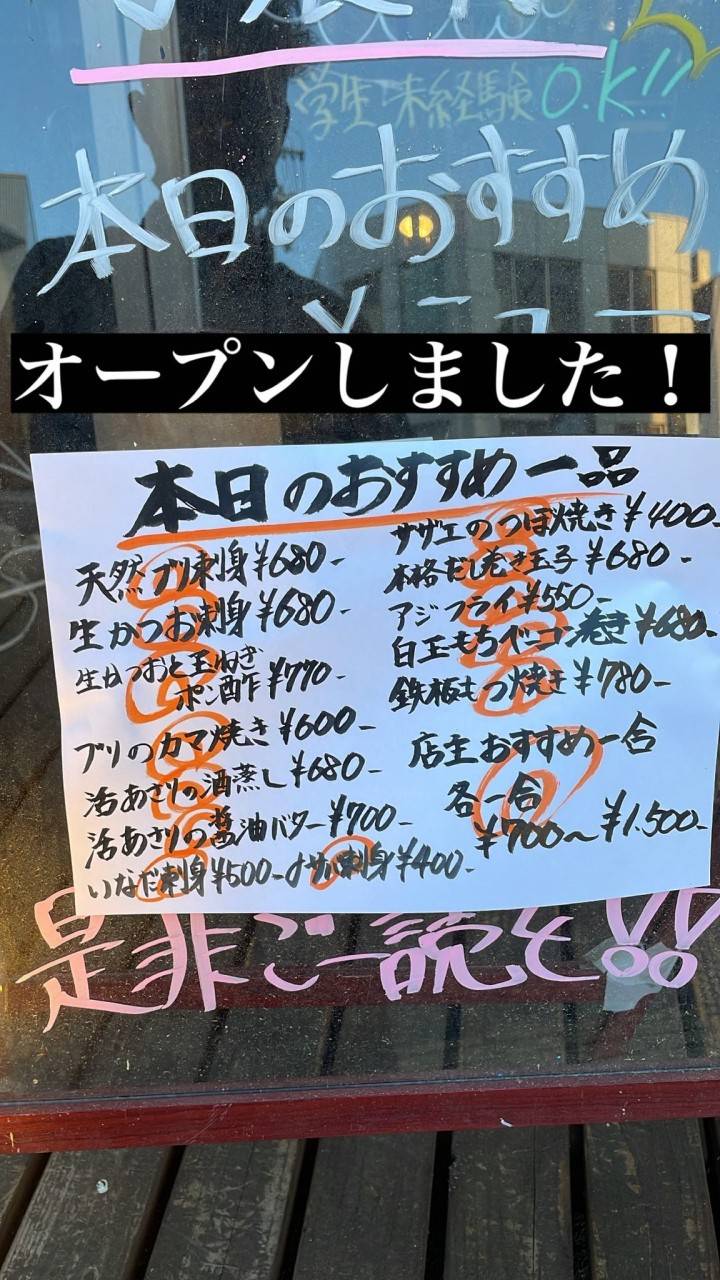 学生未経験O.K!!
本日のおすすめ
オープンしました！
本日のおすすめ一品
天然ブリ刺身¥680-
生かつお刺身¥680-
生かつおと玉ねぎ
ポン酢¥770-
ブリのカマ焼き¥600-
活あさりの酒蒸し¥680-
活あさりの醤油バター¥700-
いなだ刺身¥500-
刺身¥400-
サザエのつぼ焼き¥400-
本格だし巻き玉子¥680-
アジフライ¥550-
白玉もちベーコン巻き¥680-
鉄板もつ焼き¥780-
店主おすすめ一合
各一合
¥700〜¥1.500-
是非ご一読を!!